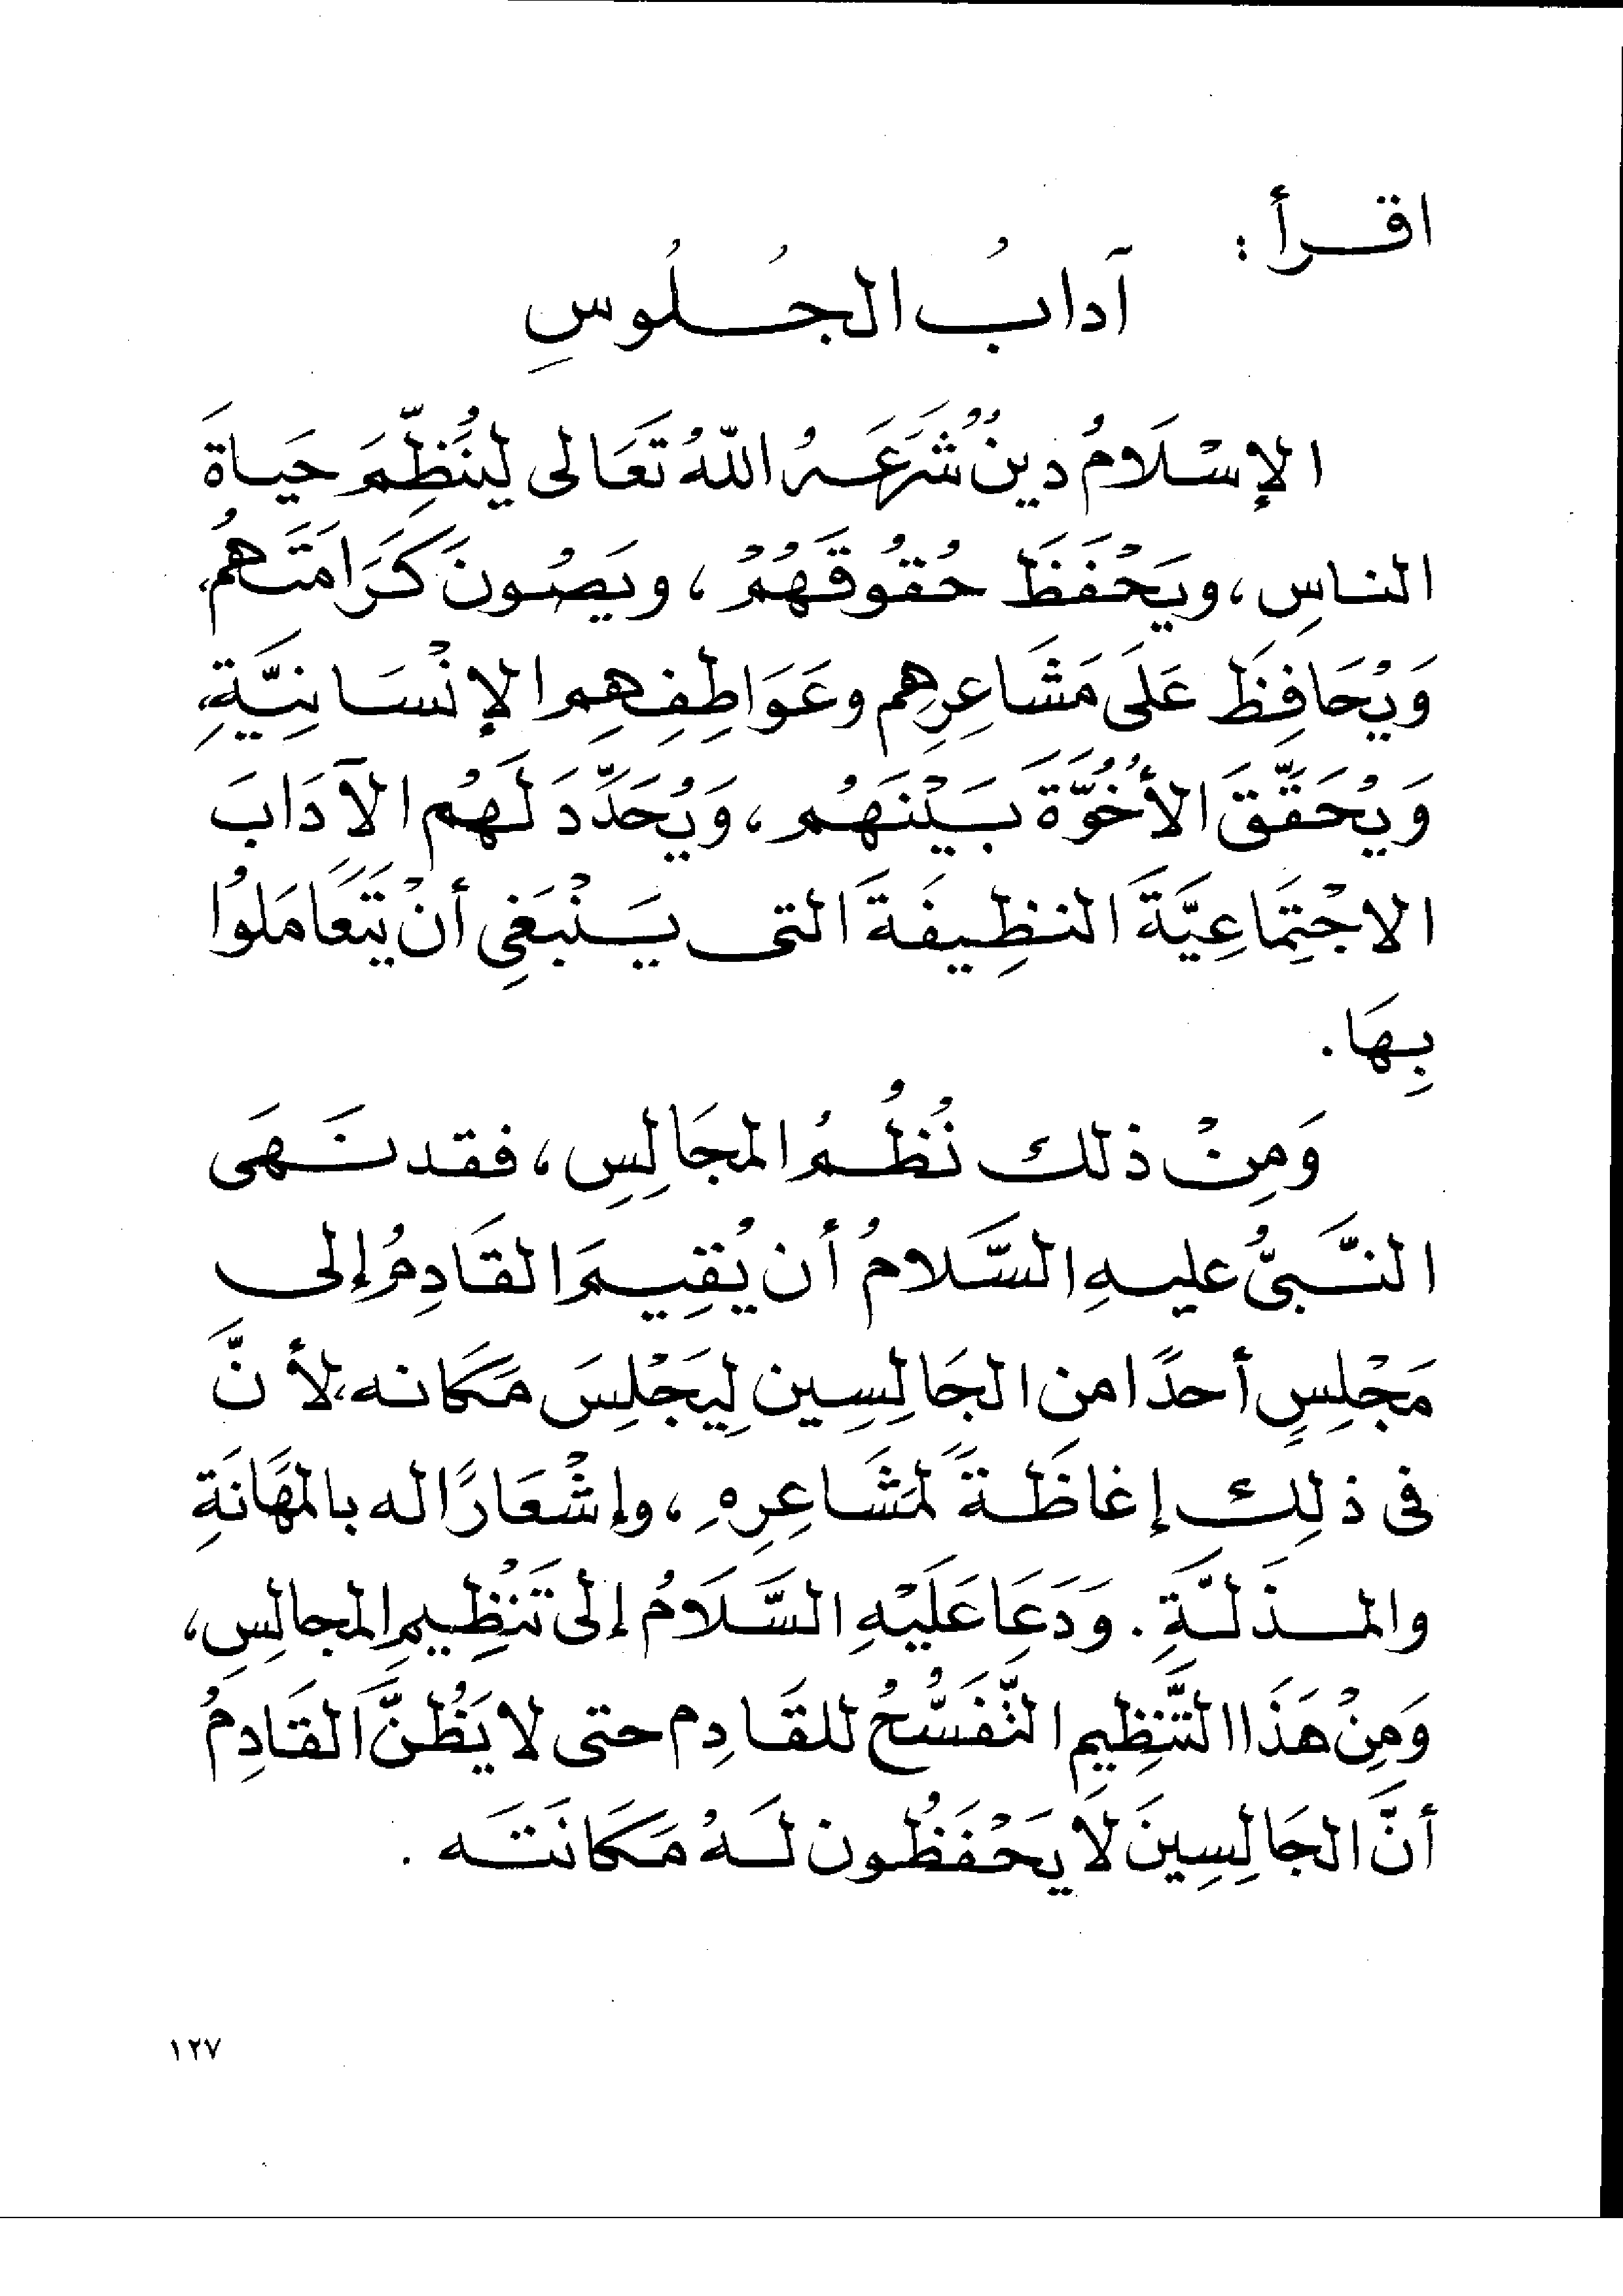 اقرأ :
آدابُ الجُلُوسِ
الإسْلَامُ دينٌ شَرَعَهُ اللّهُ تَعَالى لِيُنَظِّمَ حَياةَ
الناسِ ، ويَحْفَظَ حُقُوقَهُمْ ، ويَصُونَ كَرَامَتَهُم،
وَيُحَافِظَ عَلَى مَشَاعِرِهِم وعَوَاطِفِهِم الإنْسَانِيَّةِ،
وَيُحَقِّقَ الأُخُوَّةَ بَيْنَهُم ، وَيُحَدِّدَ لَهُم الآدَابَ
الاجْتِمَاعِيَّةَ النظِيفَةَ التى يَنْبَغِى أنْ يَتَعَامَلُوا
بِهَا .
وَمِنْ ذلك نُظُمُ المجَالِسِ ، فقد نَهَى
النَّبىُّ عليهِ السَّلامُ أن يُقِيمَ القَادِمُ إلى
مَجْلِسٍ أحدًا من الجَالِسِين لِيَجْلِسَ مَكانه، لأنَّ
فى ذلِك إغاظَةً لمَشَاعِرِهِ ، وإشْعَارًا له بالمَهَانَةِ
والمذَلَّةِ . وَدَعَا عَلَيْهِ السَّلَامُ إلى تَنْظِيمِ المجالِسِ،
وَمِنْ هَذَا التَّنظِيمِ التَّفَسُّحُ للقَادِم حتى لا يَظُنَّ القَادِمُ
أنَّ الجَالِسِينَ لَا يَحْفَظُون لَهُ مَكَانَتَه .
١٢٧